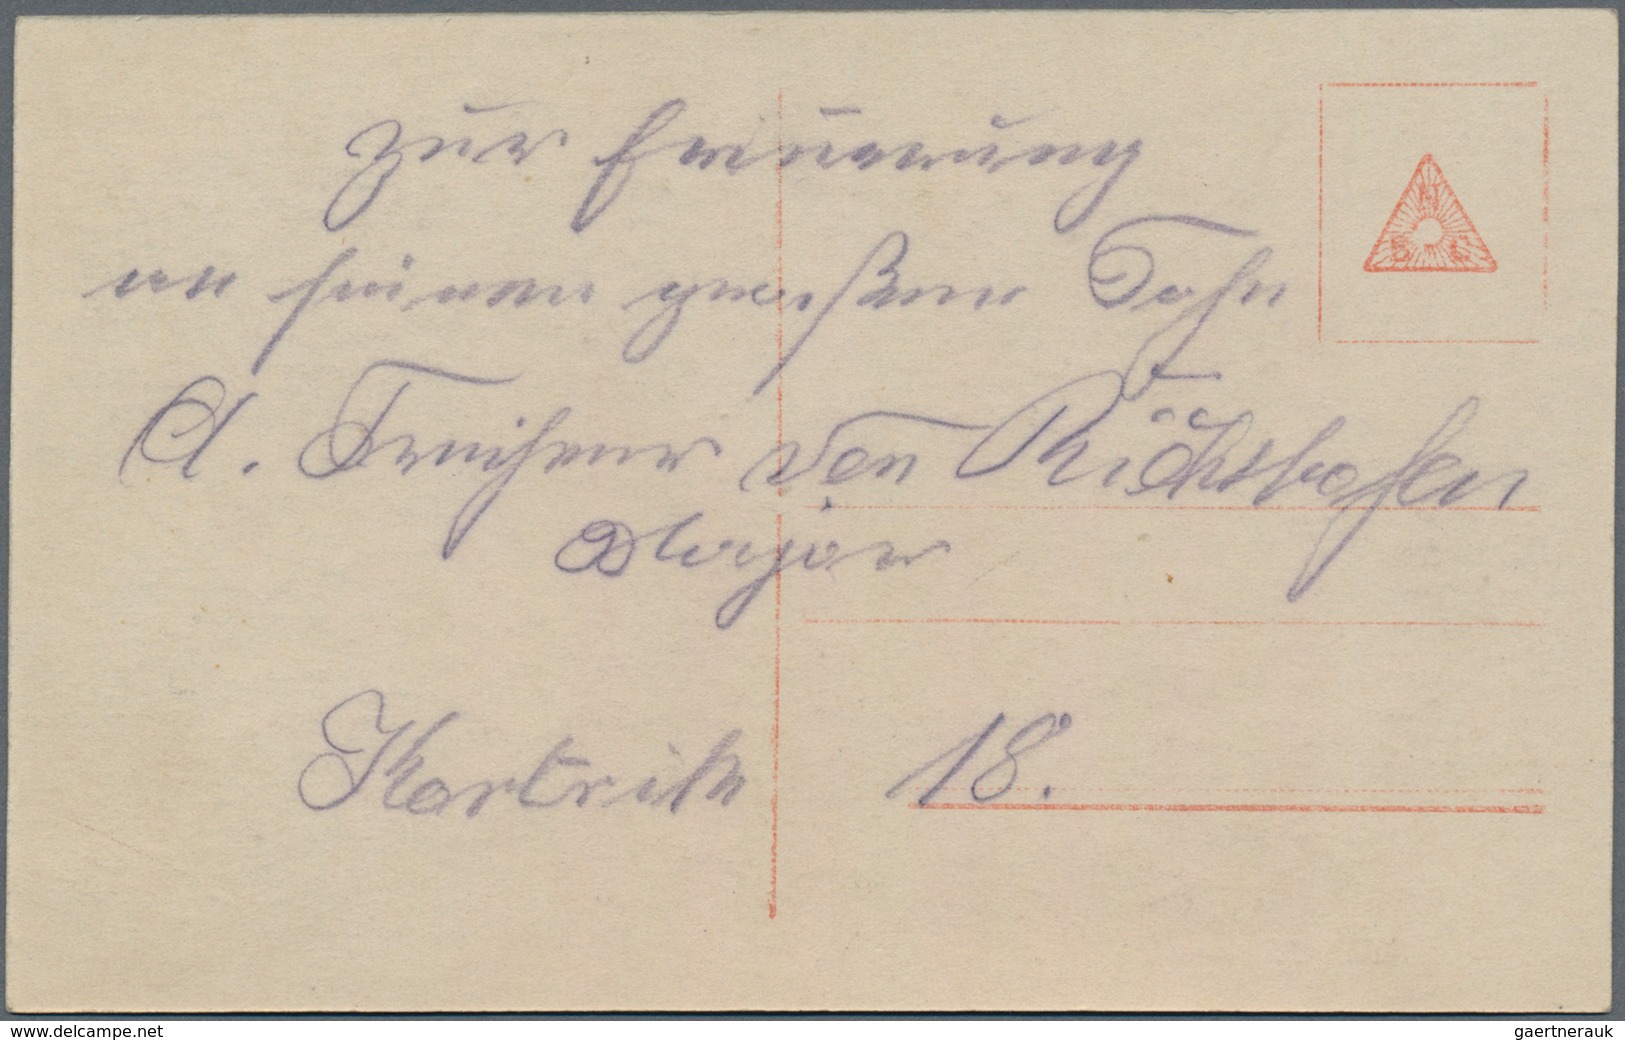 Zur Erinnerung
an seinen grossen Sohn
A. Freiherr von Richthofen
Major
Kortrik 18.
N
B C
www.delcampe.net
gaertnerauk